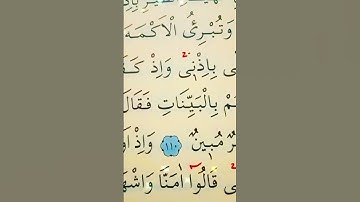 وَتُبْرِئُ الْاَكْمَهَ
ى بِاِذْنٖى وَاِذْ كَفَ
ـهُمْ بِالْبَيِّنَاتِ فَقَالَ
ـرٌ مُبٖينٌ ﴿١١٠﴾ وَاِذْ اَو
ى قَالُٓوا اٰمَنَّا وَاشْهَـ